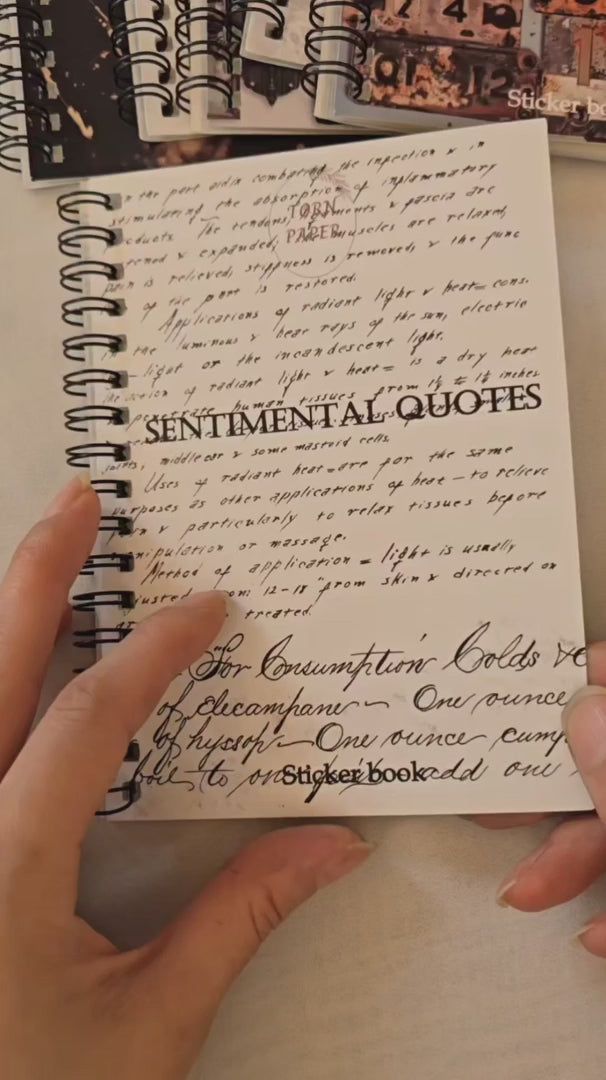 7 4
0 1 2
1
Sticker bo
n the part aidin combating the infection & in
stimulating the absorption of inflammatory
oducts. The tendons, ligaments & fascia are
tened & expanded, muscles are relaxed,
pain is relieved, stiffness is removed, & the func
of the part is restored.
TORN
PAPER
Applications of radiant light & heat = cons.
in the luminous & heat rays of the sun, electric
- light or the incandescent light.
The action of radiant light & heat = is a dry heat
penetrate human tissues from 1½ to 1½ inches
SENTIMENTAL QUOTES
joints, middle ear & some mastoid cells.
Uses of radiant heat = are for the same
purposes as other applications of heat – to relieve
pain & particularly to relax tissues before
manipulation or massage.
Method of application = light is usually
justed from 12-18" from skin & directed on
treated.
"For Consumption Colds &c
of elecampane — One ounce
of hyssop — One ounce cump
boil to on add one
Sticker book